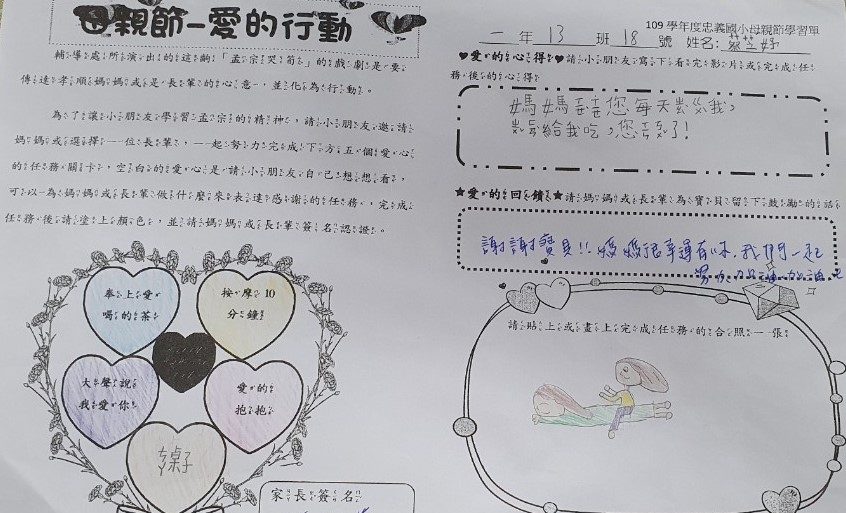 母親節－愛的行動
輔導處所演出的這齣「孟宗哭筍」的戲劇是要
傳達孝順媽媽或是長輩的心意，並化為行動。
為了讓小朋友學習孟宗的精神，請小朋友邀請
媽媽或選擇一位長輩，一起努力完成下方五個愛心
的任務關卡，空白的愛心是請小朋友自己想想看，
可以為媽媽或長輩做什麼來表達感謝的任務，完成
任務後請塗上顏色，並請媽媽或長輩簽名認證。
奉上愛
喝的茶
按摩10
分鐘
大聲說
我愛你
愛的
抱抱
ㄘㄚ桌子
家長簽名
109 學年度忠義國小母親節學習單
一年 13 班 18 號 姓名:蔡芝妤
♥愛的心得♥請小朋友寫下看完影片或完成任
務後的心得
媽媽ㄒㄧㄝˋㄒㄧㄝˋ您每天
給我吃，您
★愛的回饋★請媽媽或長輩為寶貝留下鼓勵的話
謝謝寶貝!! 媽媽很幸運有妳. 我們一起
請貼上或畫上完成任務的合照一張